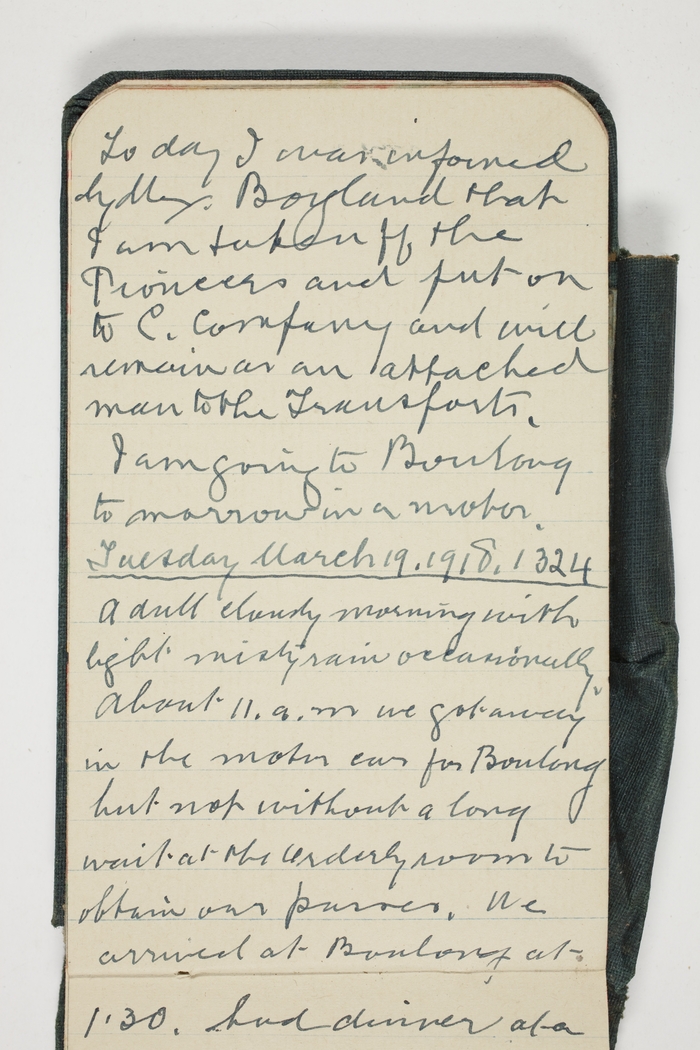 To day I was informed
by Maj. Boyland that
I am taken off the
Pioneers and put on
to C. Company and will
remain as an attached
man to the Transports.
I am going to Boulong
to morrow in a motor.
Tuesday March 19. 1918. 1324
A dull cloudy morning with
light misty rain occasionally.
About 11. a.m we got away
in the motor car for Boulong
but not without a long
wait at the Orderly room to
obtain our passes. We
arrived at Boulong at
1.30. had dinner at a